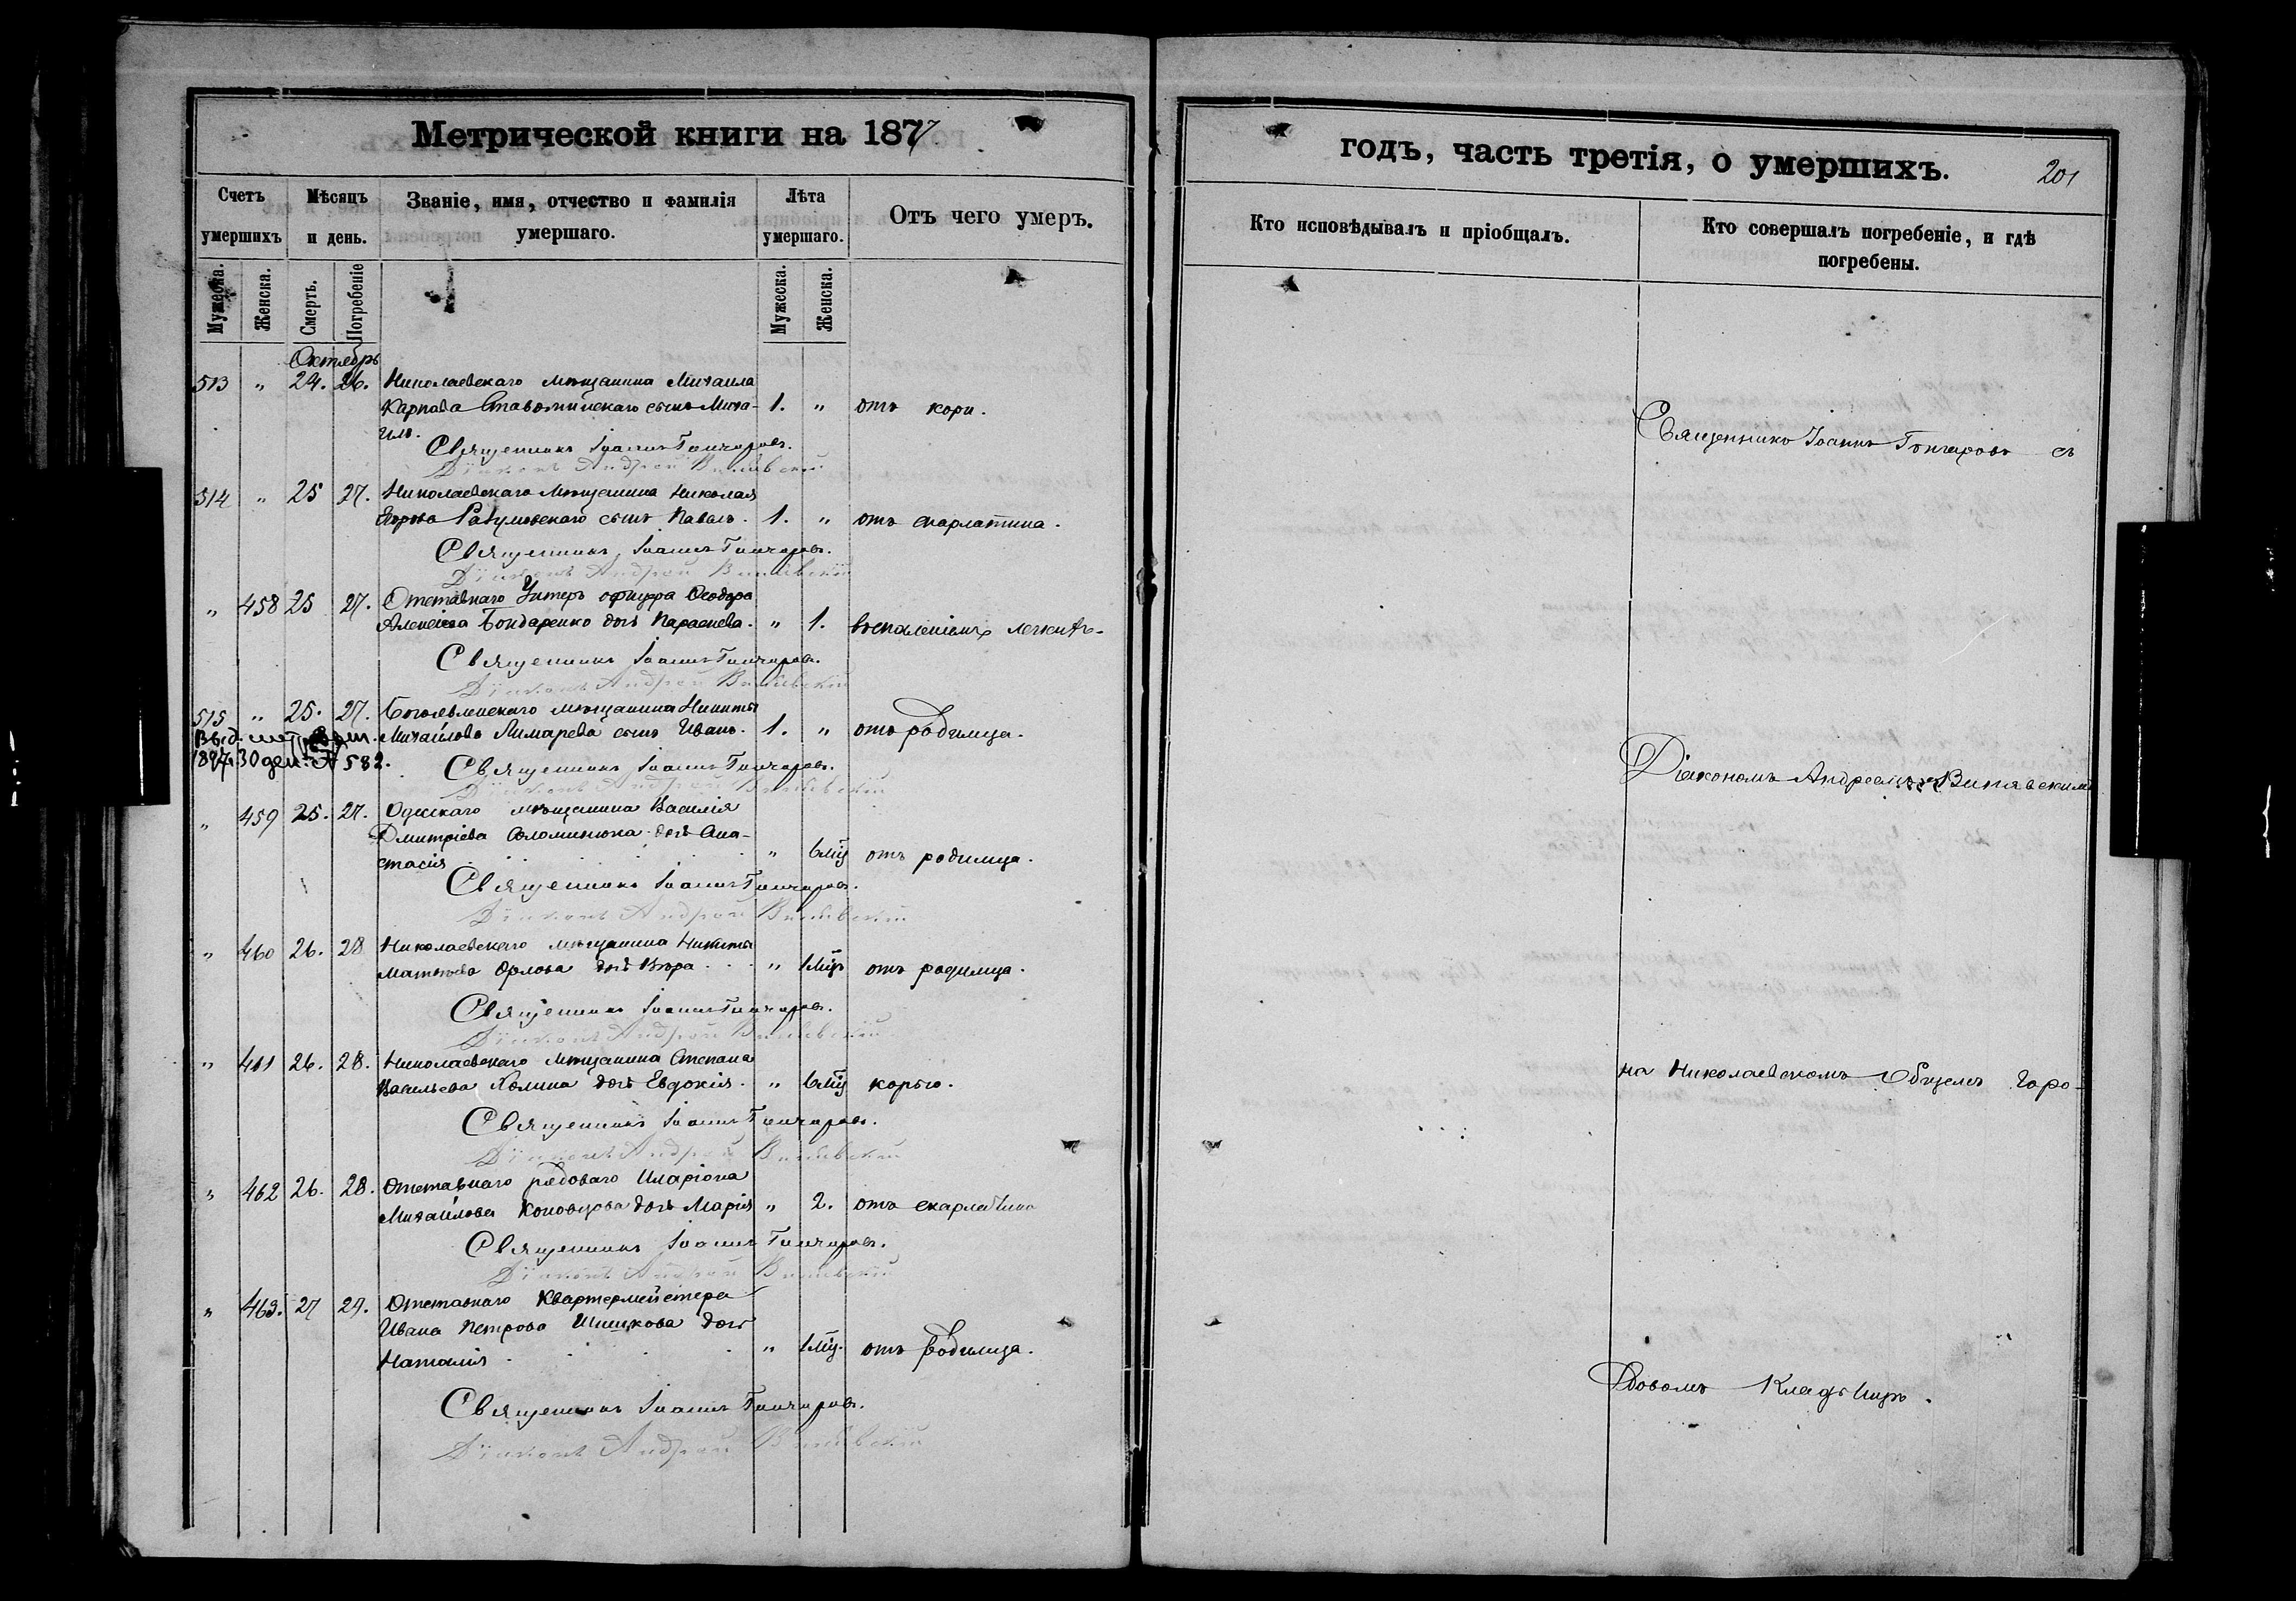 Метрической книги на 1877
Счетъ умершихъ
Мѣсяцъ и день.
Званіе, имя, отчество и фамилія умершаго.
Лѣта умершаго.
Отъ чего умеръ.
Мужеска. Женска. Смерть. Погребеніе Мужеска. Женска.
Октябрь
513 " 24. 26. Николаевскаго мѣщанина Михаила
Карпова сынъ Миха- 1. " отъ кори.
илъ.
Священникъ Іоаннъ Гончаровъ.
Діаконъ Андрей
514 " 25 27. Николаевскаго мѣщанина Николая
сынъ Павелъ. 1. " отъ скарлатина.
Священникъ Іоаннъ Гончаровъ.
Діаконъ Андрей
" 458 25 27. Отставнаго Унтеръ офицера Ѳеодора
Алексѣева Бондаренко дочь Параскева. " 1. воспаленіемъ легкихъ.
Священникъ Іоаннъ Гончаровъ.
Діаконъ Андрей
515 " 25. 27. Богоявленскаго мѣщанина Никиты
Выд.
Михайлова Лимарева сынъ Иванъ. 1. " отъ родимца.
1897. 30 № 582.
Священникъ Іоаннъ Гончаровъ.
Діаконъ Андрей
" 459 25. 27. Одесскаго мѣщанина Василія
Дмитріева Соломинюка дочь Ана-
стасія " 6 мц отъ родимца.
Священникъ Іоаннъ Гончаровъ.
Діаконъ Андрей
" 460 26. 28 Николаевскаго мѣщанина Никиты
Матвѣева Орлова дочь Вѣра " 1 мц отъ родимца.
Священникъ Іоаннъ Гончаровъ.
Діаконъ Андрей
" 461 26. 28. Николаевскаго мѣщанина Степана
Васильева дочь Евдокія. " 6 мц корью.
Священникъ Іоаннъ Гончаровъ.
Діаконъ Андрей
" 462 26. 28. Отставнаго рядоваго Иларіона
Михайлова Коновцова дочь Марія " 2. отъ скарлатина
Священникъ Іоаннъ Гончаровъ.
Діаконъ Андрей
" 463. 27 29. Отставнаго Квартермейстера
Ивана Петрова Шишкова дочь
Наталія " 1 мц. отъ родимца.
Священникъ Іоаннъ Гончаровъ.
Діаконъ Андрей
годъ, часть третія, о умершихъ.
201
Кто исповѣдывалъ и пріобщалъ.
Кто совершалъ погребеніе, и гдѣ погребены.
Священникъ Іоаннъ Гончаровъ съ
Діакономъ Андреемъ Винявскимъ
на Николаевскомъ Общемъ Горо-
довомъ Кладбищѣ.